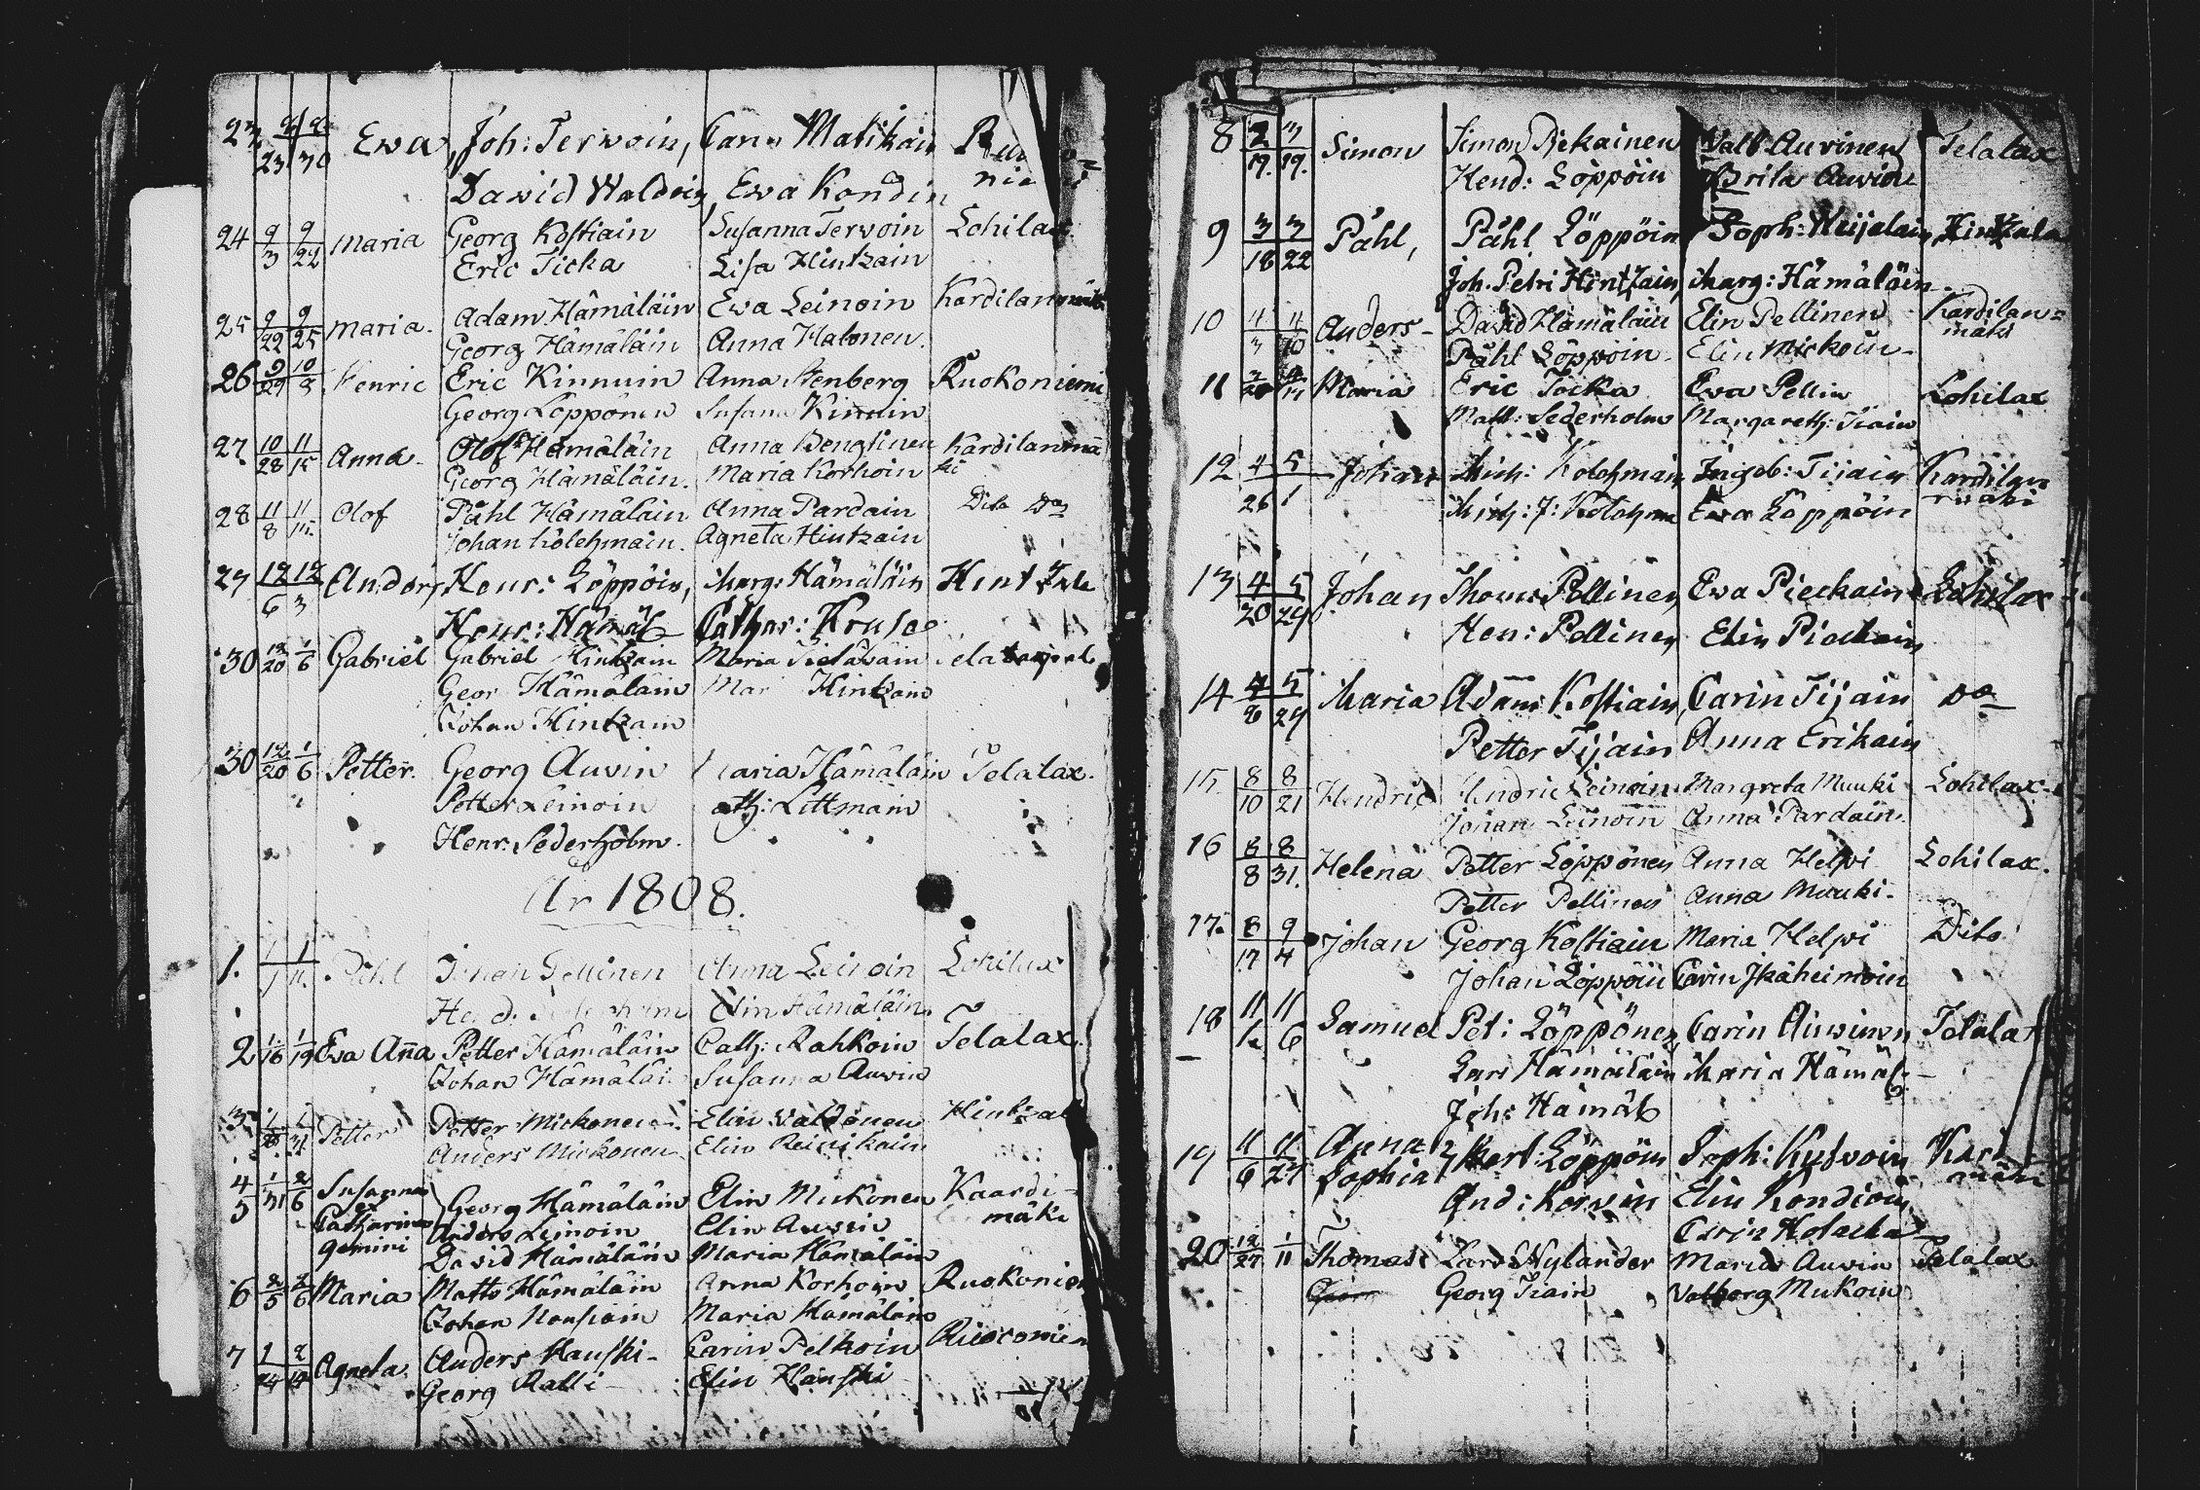 23 23 30 Ewa, Joh: Terwoin, Carin Matikain
Dawid Waldrig, Ewa Kondin
24 9/3 9/22 Maria Georg Kostiain Susanna Terwoin Lohilax
Eric Ticka Lisa Hintzain
25 9/22 9/25 Maria. Adam Hämäläin Ewa Leinoin Kardilanmäki
Georg Hämäläin Anna Halonen.
26 9/29 10/8 Henric Eric Kinnuin Anna Stenberg Ruokoniemi
Georg Löppönen Susana Kinnuin
27 10/28 11/15 Anna Olof Hämäläin Anna Bengtinen Kardilanmä
Georg Hämäläin. Maria Korhoin ki
28 11/8 11/15 Olof Påhl Hämäläin Anna Pardain Dito Do
Johan Kolehmain. Agneta Hintzain
29 12/6 12/3 Anders Henr: Löppöin, Marg: Hämäläin Hintzala
Henr: Hämäl Cathar: Kruse
30 12/20 1/6 Gabriel Gabriel Hintzain Maria Pietäwäin
Geor Hämäläin Mar Hintzain
Johan Hintzain
30 12/20 1/6 Petter. Georg Auvin Maria Hämäläin Telalax.
Petter Leinoin Cath: Littmain
Henr: Sederholm.
År 1808.
1. 1/1 1/11 Påhl Johan Pellinen Anna Leinoin Lohilax
Elin Hämäläin
2 1/16 1/19 Ewa Aña Petter Hämäläin Cath: Rahkoin Telalax.
Johan Hämäläi Susanna Auvin
3 Petter Petter Mickonen Elin Valdonen Hintzal
Anders Mickonen Elin Reinikain
4 1/31 2/6 Susanna
5 et Catharina Georg Hämäläin Elin Mukonen Kaardi
gemini Anders Leinoin Elin Auvin mäki
David Hämäläin Maria Hämäläin
6 2/5 2/6 Maria Matts Hämäläin Anna Korhoin Ruokoniem
Johan Nousiain Maria Hämäläin
7 1/24 2/19 Agneta Anders Hauski Carin Pelkoin Ruokoniem
Georg Ralli Elin Hauski
8 2/19. 3/19. Simon Simon Pickainen Valb: Auvinen Telalax
Hend: Löppöin Brita Auvin
9 3/18 3/22 Påhl, Påhl Löppöin Soph: Heijalain Hintzala
Joh. Petri Hintzain, Marg: Hämäläin
10 4/3 4/10 Anders David Hämäläin Elin Pellinen Kardilan=
Påhl Löppöin Elin Mickoin mäki
11 Maria Eric Ticka Ewa Pellin Lohilax
Matt: Sederholm Margareth: Tiain
12 4/26 5/1 Johan Mich: Kolehmain Ingeb: Tijain Kardilan
Mich: J: Kolehm Ewa Löppöin mäki
13 4/20 5/29 Johan Thomas Pellinen Ewa Pieckain Lohilax
Hen: Pellinen Elin Pieckain
14 5/29 Maria Adam Kostiain, Carin Tijain Do
Petter Tijain Anna Erikain
15 8/10 8/21 Hendric Hendric Leinoin Margreta Muuki Lohilax
Johan Leinoin Anna Pardain.
16 8/8 8/31. Helena Petter Löppönen Anna Helwi Lohilax.
Petter Pellinen Anna Muuki
17. 8/17 9/4 Johan Georg Kostiain Maria Helwi Dito
Johan Löppöin Carin Ikäheimoin
18 11/1 11/6 Samuel Pet: Löppönen, Carin Auvinen Telalax
Lars Hämäläin Maria Hämäl:
Joh: Hämäl
19 11/6 11/27 Anna Sophia Mart: Löppöin Soph: Kutwoin Kar
And: Korvin Elin Kondioin mäki
Carin Holacka
20 12/27 1/11 Thomas Lars Nylander Maria Auvin Telalax
Georg Tiain Valborg Mukoin